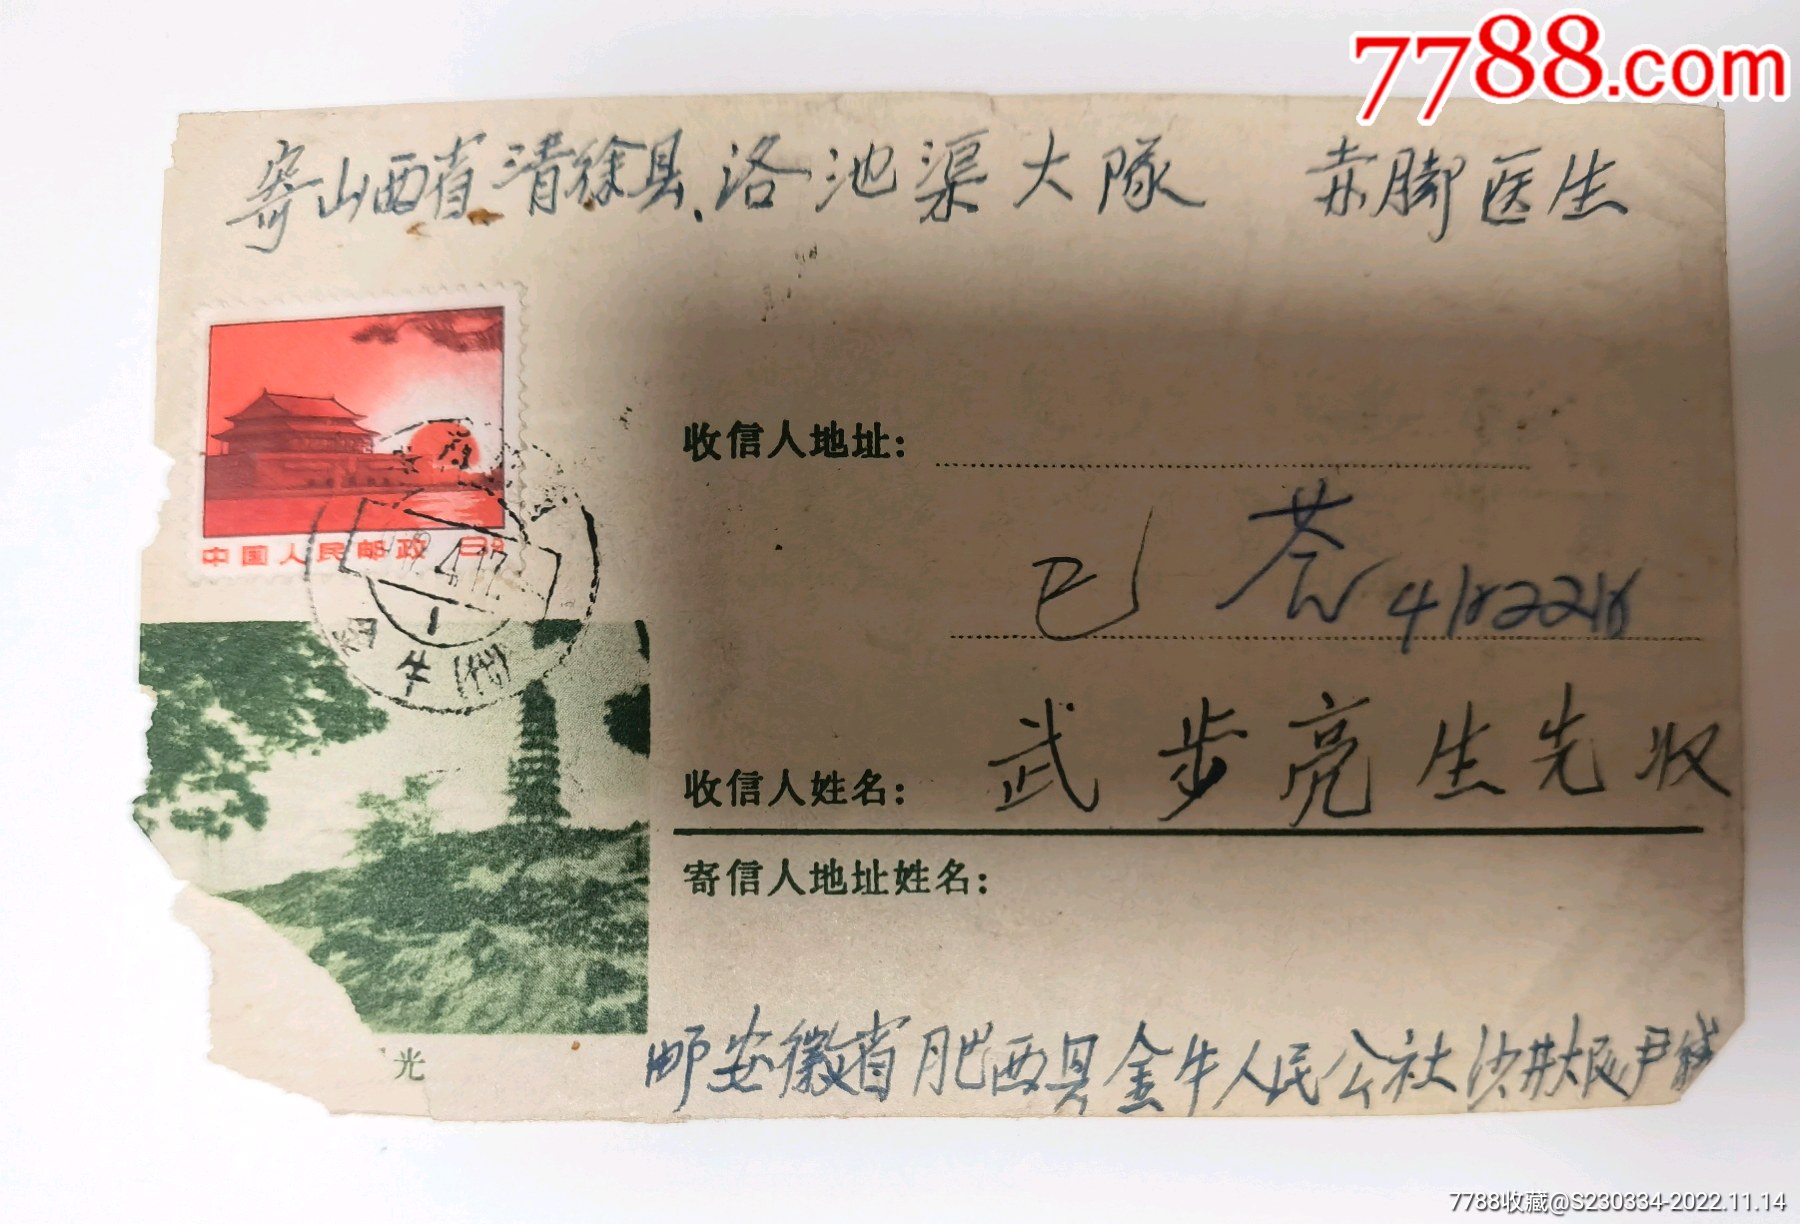 7788.com
寄山西省清徐县.洛池渠大隊 赤脚医生
中国人民邮政 8分
收信人地址:
已答
收信人姓名: 武步亮生先收
寄信人地址姓名:
牛(代)
光
邮安徽省肥西县金牛人民公社沙井大
7788收藏@S230334-2022.11.14